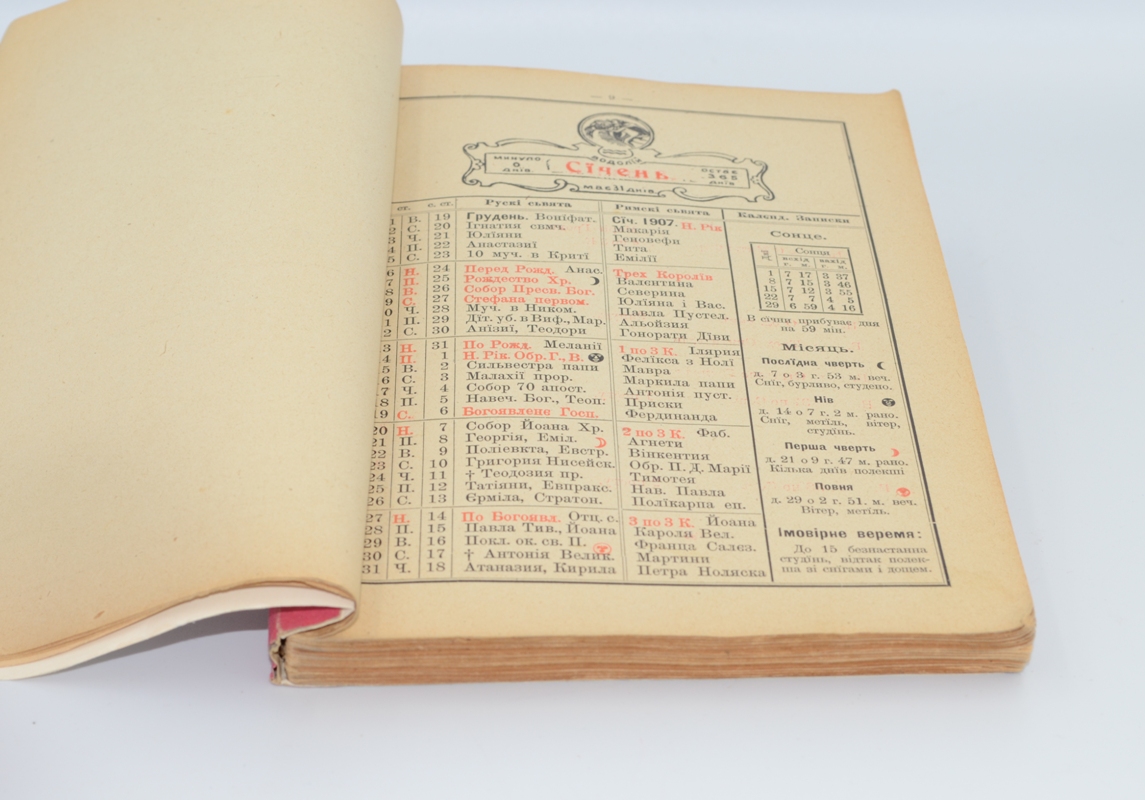 — 9 —
ВОДОЛІЙ
минуло 0 днїв. Сїчень. остає 365 днїв
має 31 днїв
ст. с. ст. Рускі сьвята Римскі сьвята Календ. Записки
1 В. 19 Грудень. Воніфат. Сїч. 1907. Н. Рік
2 С. 20 Ігнатия свмч. Макарія
3 Ч. 21 Юлїяни Геновефи
4 П. 22 Анастазиї Тита
5 С. 23 10 муч. в Криті Емілїї
6 Н. 24 Перед Рожд. Анас. Трех Королїв
7 П. 25 Рождество Хр. Валєнтина
8 В. 26 Собор Пресв. Бог. Северина
9 С. 27 Стефана первом. Юлїяна і Вас.
0 Ч. 28 Муч. в Ником. Павла Пустел.
1 П. 29 Дїт. уб. в Виф., Мар. Альойзия
2 С. 30 Анїзиї, Теодори Гонорати Дїви
3 Н. 31 По Рожд. Мелянії 1 по 3 К. Ілярия
4 П. 1 Н. Рік. Обр. Г., В. Фелїкса з Нолї
5 В. 2 Сильвестра папи Мавра
6 С. 3 Малахії прор. Маркила папи
7 Ч. 4 Собор 70 апост. Антонїя пуст.
18 П. 5 Навеч. Бог., Теоп. Приски
19 С. 6 Богоявлене Госп. Фердинанда
20 Н. 7 Собор Йоана Хр. 2 по 3 К. Фаб.
21 П. 8 Георгія, Еміл. Агнети
22 В. 9 Полїевкта, Евстр. Вінкентия
23 С. 10 Григория Нисейск. Обр. П. Д. Марії
24 Ч. 11 † Теодозия пр. Тимотея
25 П. 12 Татїяни, Евпракс. Нав. Павла
26 С. 13 Єрміла, Стратон. Полїкарпа еп.
27 Н. 14 По Богоявл. Отц. с. 3 по 3 К. Йоана
28 П. 15 Павла Тив., Йоана Кароля Вел.
29 В. 16 Покл. ок. св. П. Франца Салєз.
30 С. 17 † Антонїя Велик. Мартини
31 Ч. 18 Атаназия, Кирила Петра Ноляска
Сонце.
Сонця
всхід захід
г. м. г. м.
1 7 17 3 37
8 7 15 3 46
15 7 12 3 55
22 7 7 4 5
29 6 59 4 16
В сїчни прибуває дня
на 59 мін.
Місяць.
Послїдна чверть
д. 7 о 3 г. 53 м. веч.
Снїг, бурливо, студено.
Нів
д. 14 о 7 г. 2 м. рано.
Снїг, метїль, вітер,
студїнь.
Перша чверть
д. 21 о 9 г. 47 м. рано.
Кілька днїв полекші
Повня
д. 29 о 2 г. 51. м. веч.
Вітер, метїль.
Імовірне веремя:
До 15 безнастанна
студїнь, відтак полек-
ша зі снїгами і дощем.